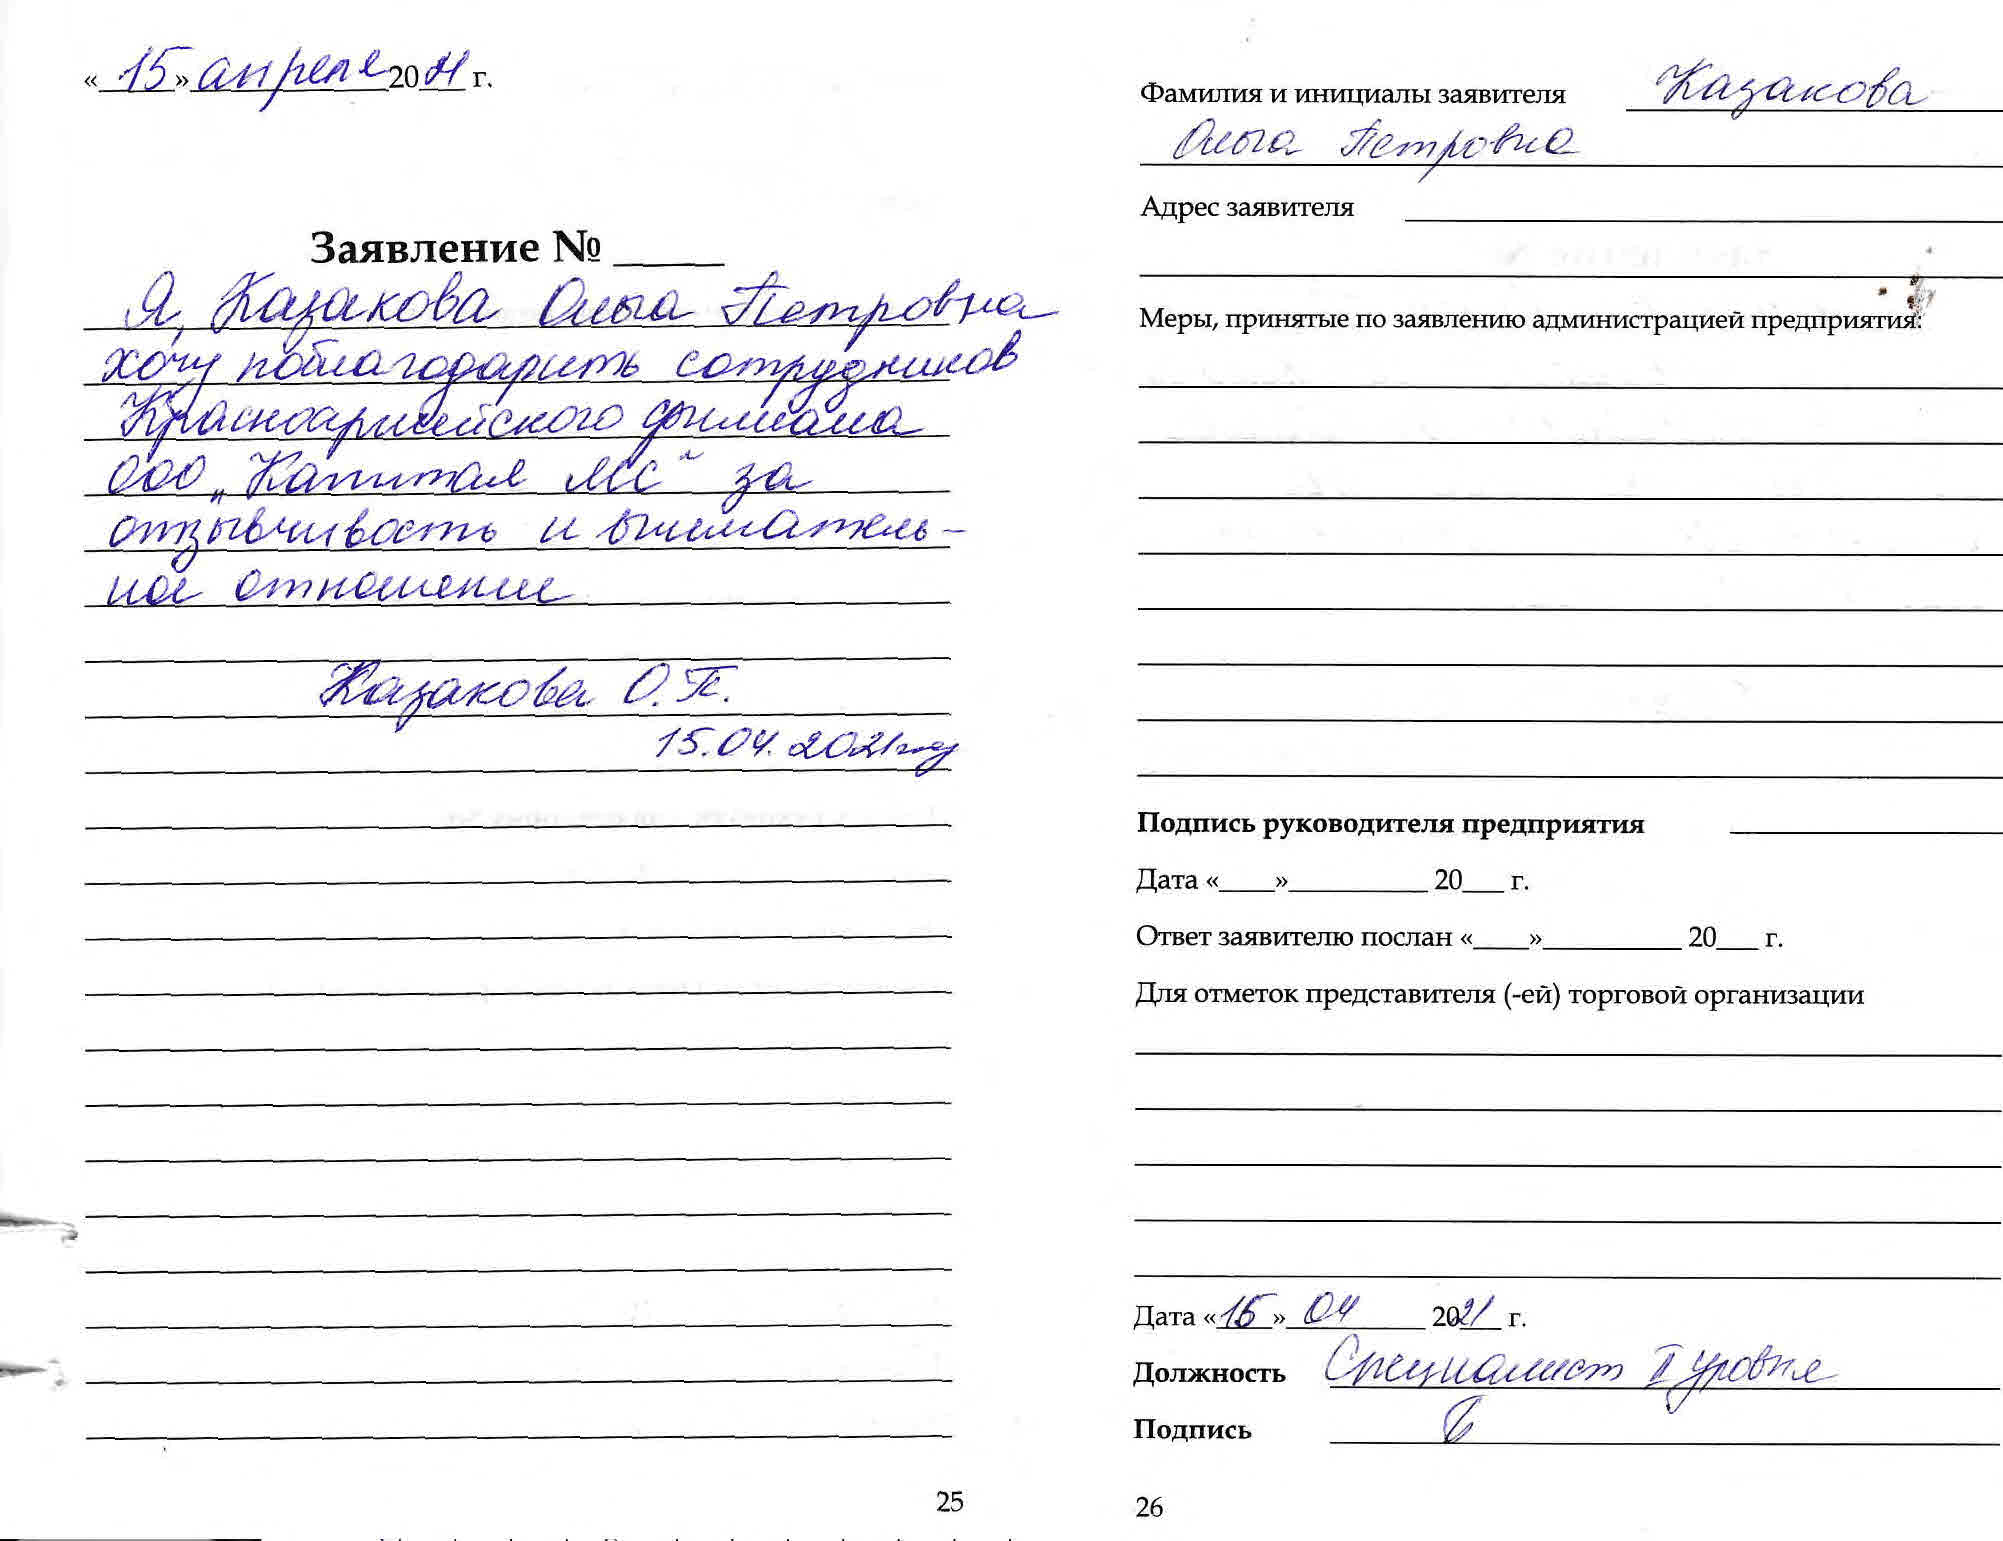 «15» апреля 2021 г.
Заявление № ____
Я, Казакова Ольга Петровна
хочу поблагодарить сотрудников
Красноармейского филиала
ООО „Капитал МС" за
отзывчивость и вниматель-
ное отношение
Казакова О.П.
15.04.2021год
25
Фамилия и инициалы заявителя Казакова
Ольга Петровна
Адрес заявителя
Меры, принятые по заявлению администрацией предприятия:
Подпись руководителя предприятия
Дата «____»__________ 20___ г.
Ответ заявителю послан «____»__________ 20___ г.
Для отметок представителя (-ей) торговой организации
Дата «15» 04 2021 г.
Должность Специалист II уровня
Подпись
26